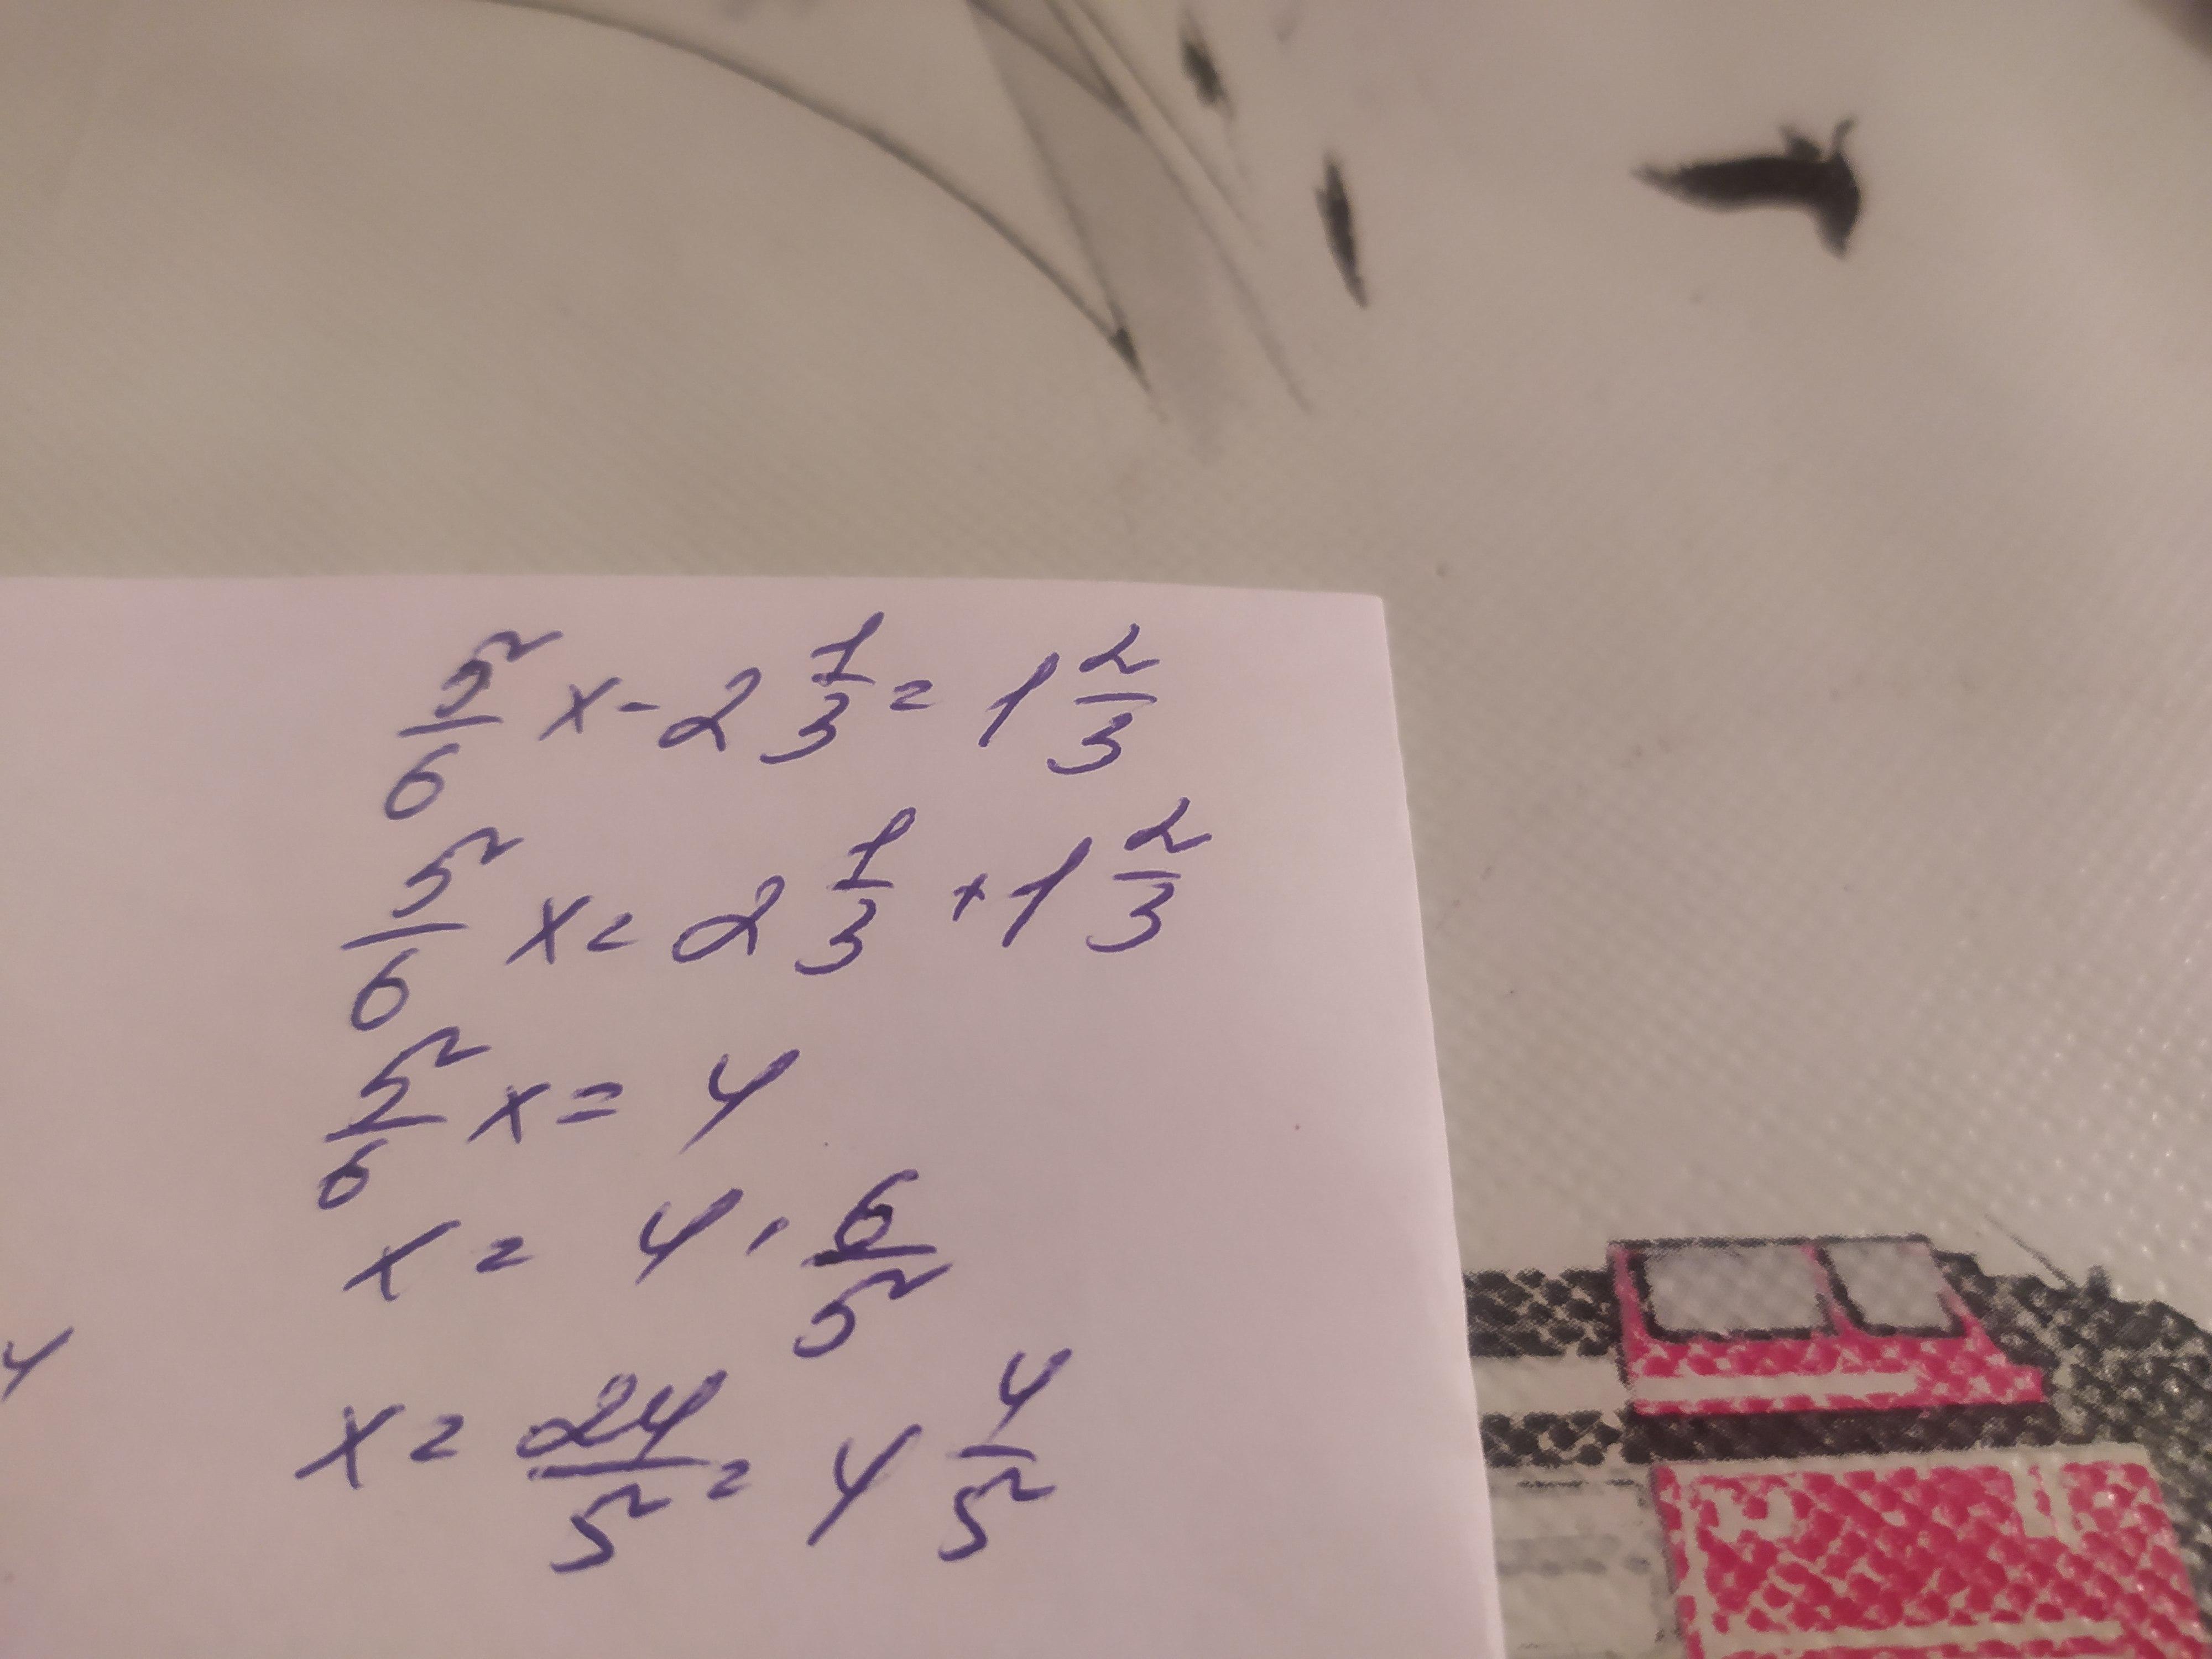 5/6 x - 2 1/3 = 1 2/3
5/6 x = 2 1/3 + 1 2/3
5/6 x = 4
x = 4 · 6/5
4
x = 24/5 = 4 4/5